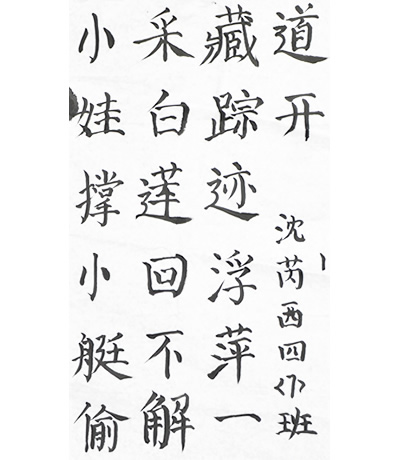 小娃撑小艇偷
采白莲回不解
藏踪迹浮萍一
道开
沈芮西四(7)班